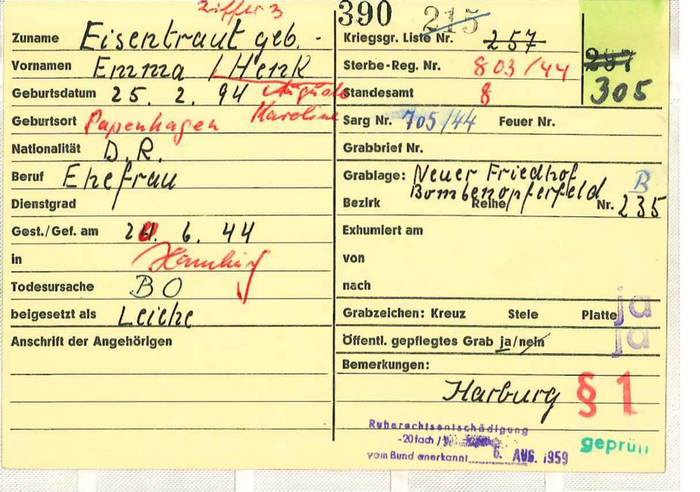 Ziffer 3
Zuname Eisentraut geb. -
Vornamen Emma / Henk
Auguste
Geburtsdatum 25. 2. 94
Karoline
Geburtsort Papenhagen
Nationalität D.R.
Beruf Ehefrau
Dienstgrad
Gest./Gef. am 20. 6. 44
in Hamburg
Todesursache BO
beigesetzt als Leiche
Anschrift der Angehörigen
390 215
Kriegsgr. Liste Nr. 257
297
Sterbe-Reg. Nr. 803/44
305
Standesamt 8
Sarg Nr. 705/44 Feuer Nr.
Grabbrief Nr.
Grablage: Neuer Friedhof
Bombenopferfeld B
Bezirk Reihe Nr. 235
Exhumiert am
von
nach
Grabzeichen: Kreuz Stele Platte ja
Öffentl. gepflegtes Grab ja/nein ja
Bemerkungen:
Harburg § 1
Ruherechtsentschädigung
-20fach /
vom Bund anerkannt 6. AUG. 1959
geprüft